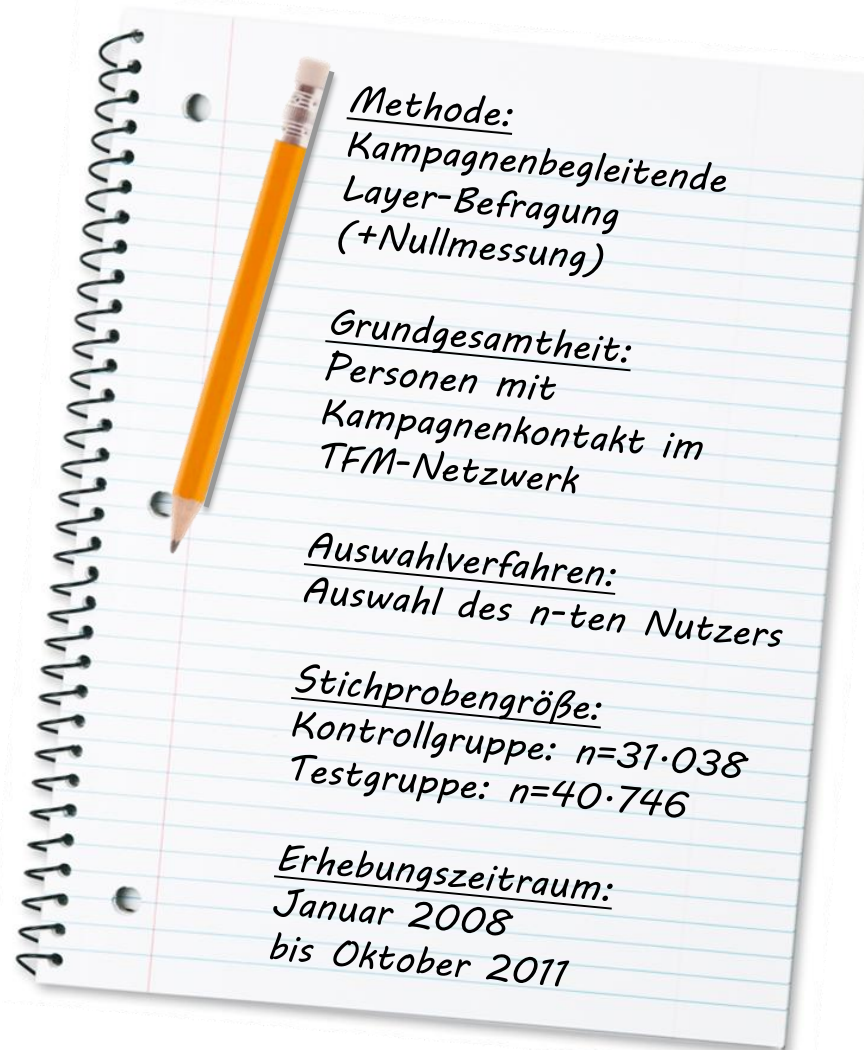 Methode:
Kampagnenbegleitende
Layer-Befragung
(+Nullmessung)
Grundgesamtheit:
Personen mit
Kampagnenkontakt im
TFM-Netzwerk
Auswahlverfahren:
Auswahl des n-ten Nutzers
Stichprobengröße:
Kontrollgruppe: n=31·038
Testgruppe: n=40·746
Erhebungszeitraum:
Januar 2008
bis Oktober 2011